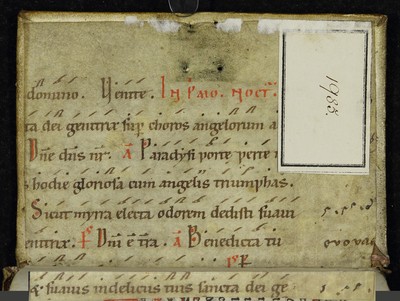 domino. Venite. In primo. noct̄.
ta dei genitrix sup̄ choros angelorum a
Dn̄e dn̄s nr̄. A Paradysi porte per te n
s hodie gloriosa cum angelis triumphas.
Sicut myrra electa odorem dedisti suaui
enitrix. Dn̄i ē t̄ra. A Benedicta tu euouae
suauis indeliciis tuis sancta dei ge
1983.